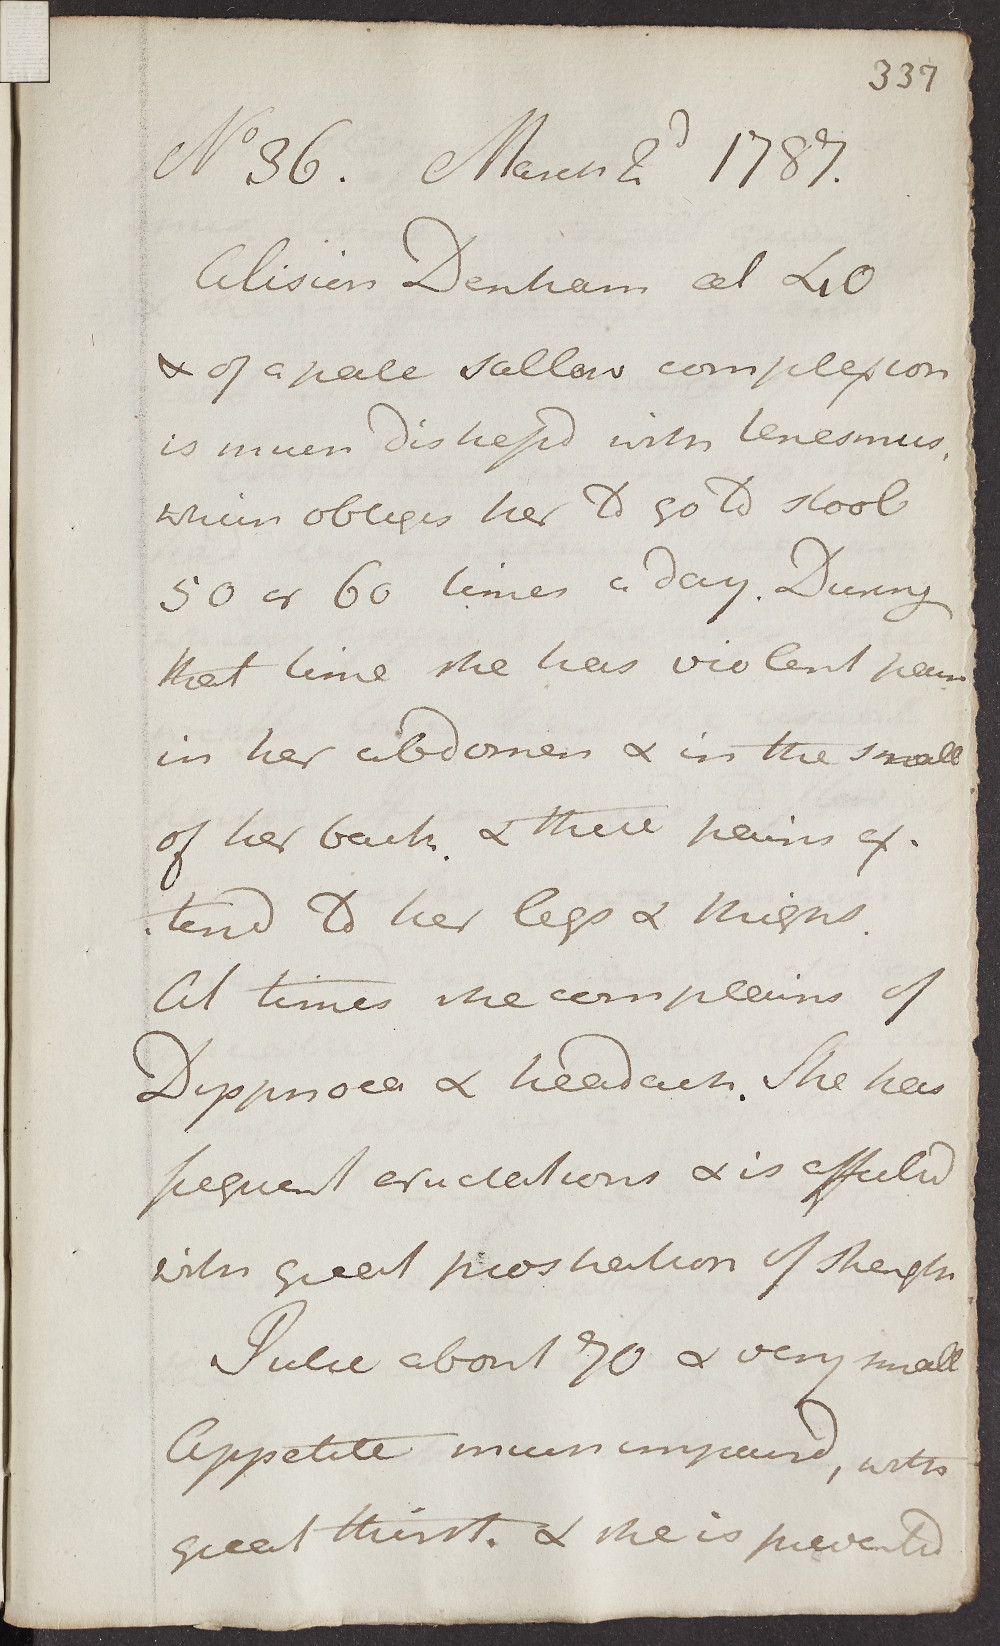 337
No 36. March 2d 1787.
Alison Denham aet 40
& of a pale sallow complexion
is much distress'd with tenesmus,
which obliges her to go to stool
50 or 60 times a day. During
that time she has violent pain
in her abdomen & in the small
of her back. & these pains ex-
tend to her legs & thighs.
At times she complains of
Dyspnoea & headach. She has
frequent eructations & is affected
with great prostration of strength
Pulse about 70 & very small
Appetite much impaired, with
great thirst. & she is prevented